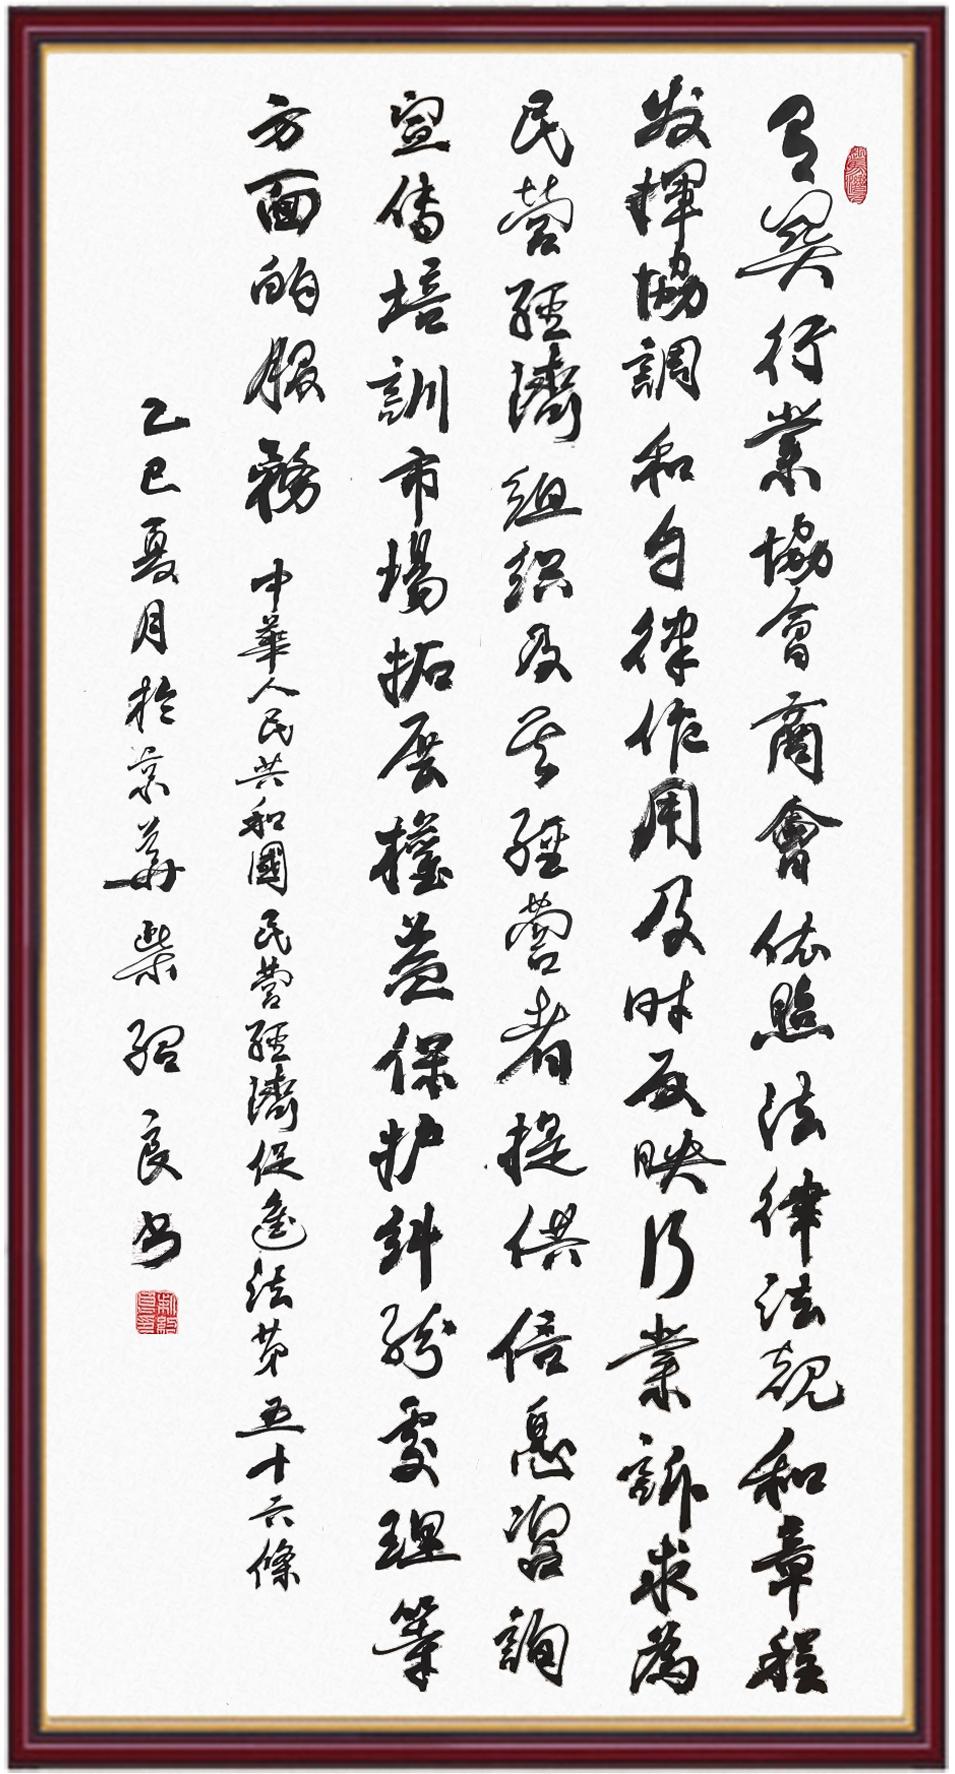 有關行業協會商會依照法律法規和章程
发揮協調和自律作用及时反映行業訴求為
民營經濟組织及其經營者提供信息諮詢
宣傳培訓市場拓展權益保护糾紛處理等
方面的服務 中華人民共和國民營經濟促進法第五十六條
乙巳夏月於京華柴紹良书